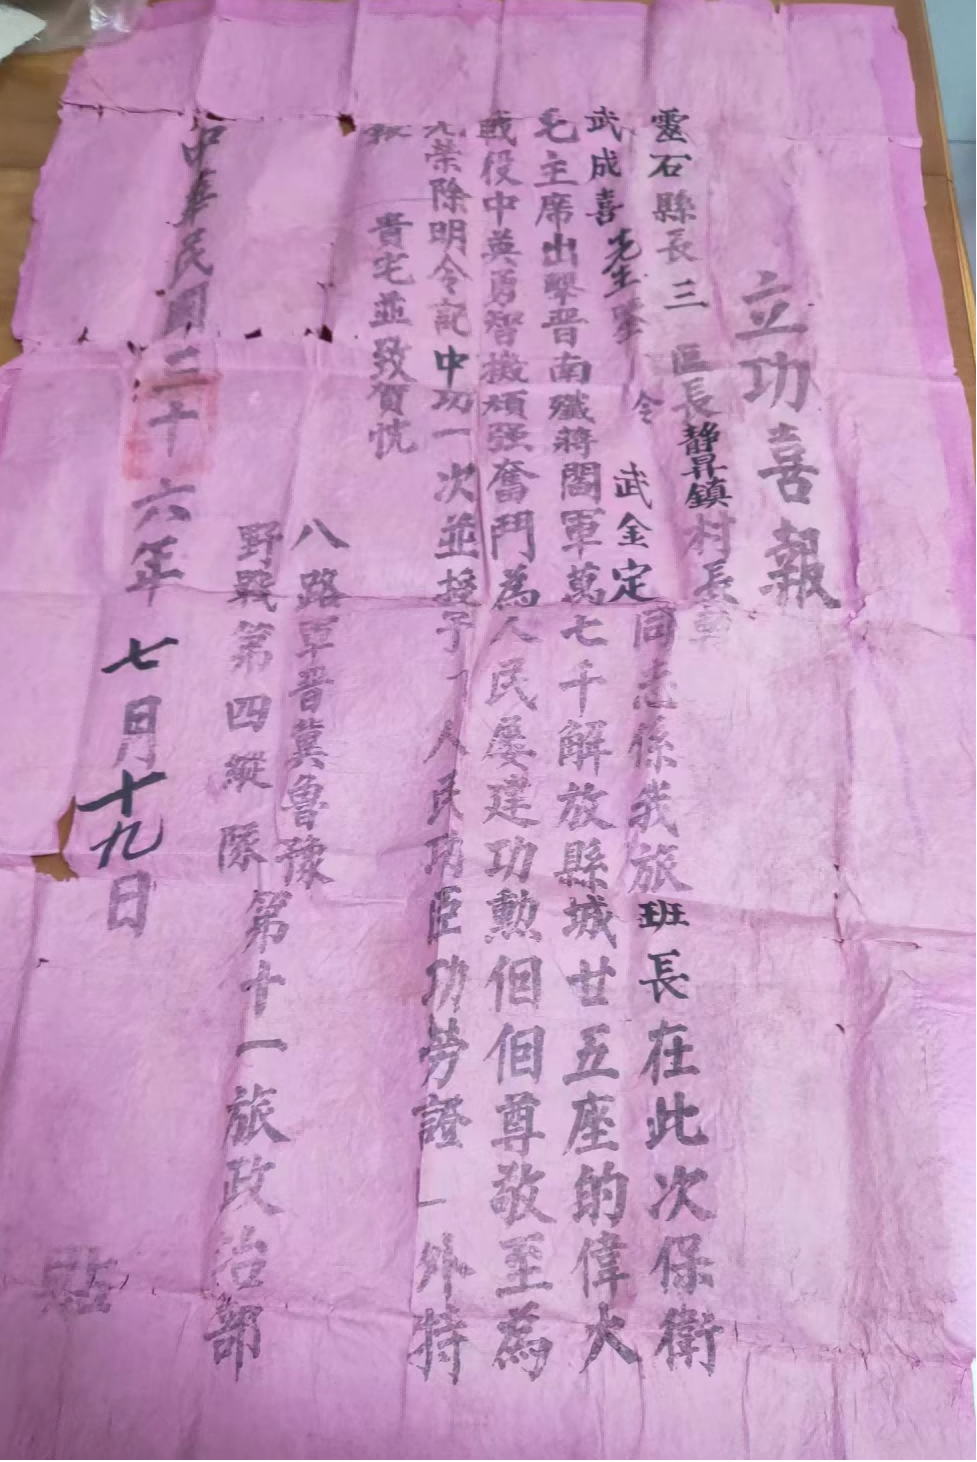 立功喜報
靈石縣長三區長靜昇鎮村長轉
武成喜先生鑒令武金定同志係我旅班長在此次保衛
毛主席出擊晋南殲蔣閻軍萬七千解放縣城廿五座的偉大
戰役中英勇智機頑强奮鬥為人民屡建功勳佪佪尊敬至為
光榮除明令記中功一次並授予人民功臣功勞證一外特
報貴宅並致賀忱
八路軍晋冀魯豫
野戰第四縱隊第十一旅政治部
中華民國三十六年七月十九日